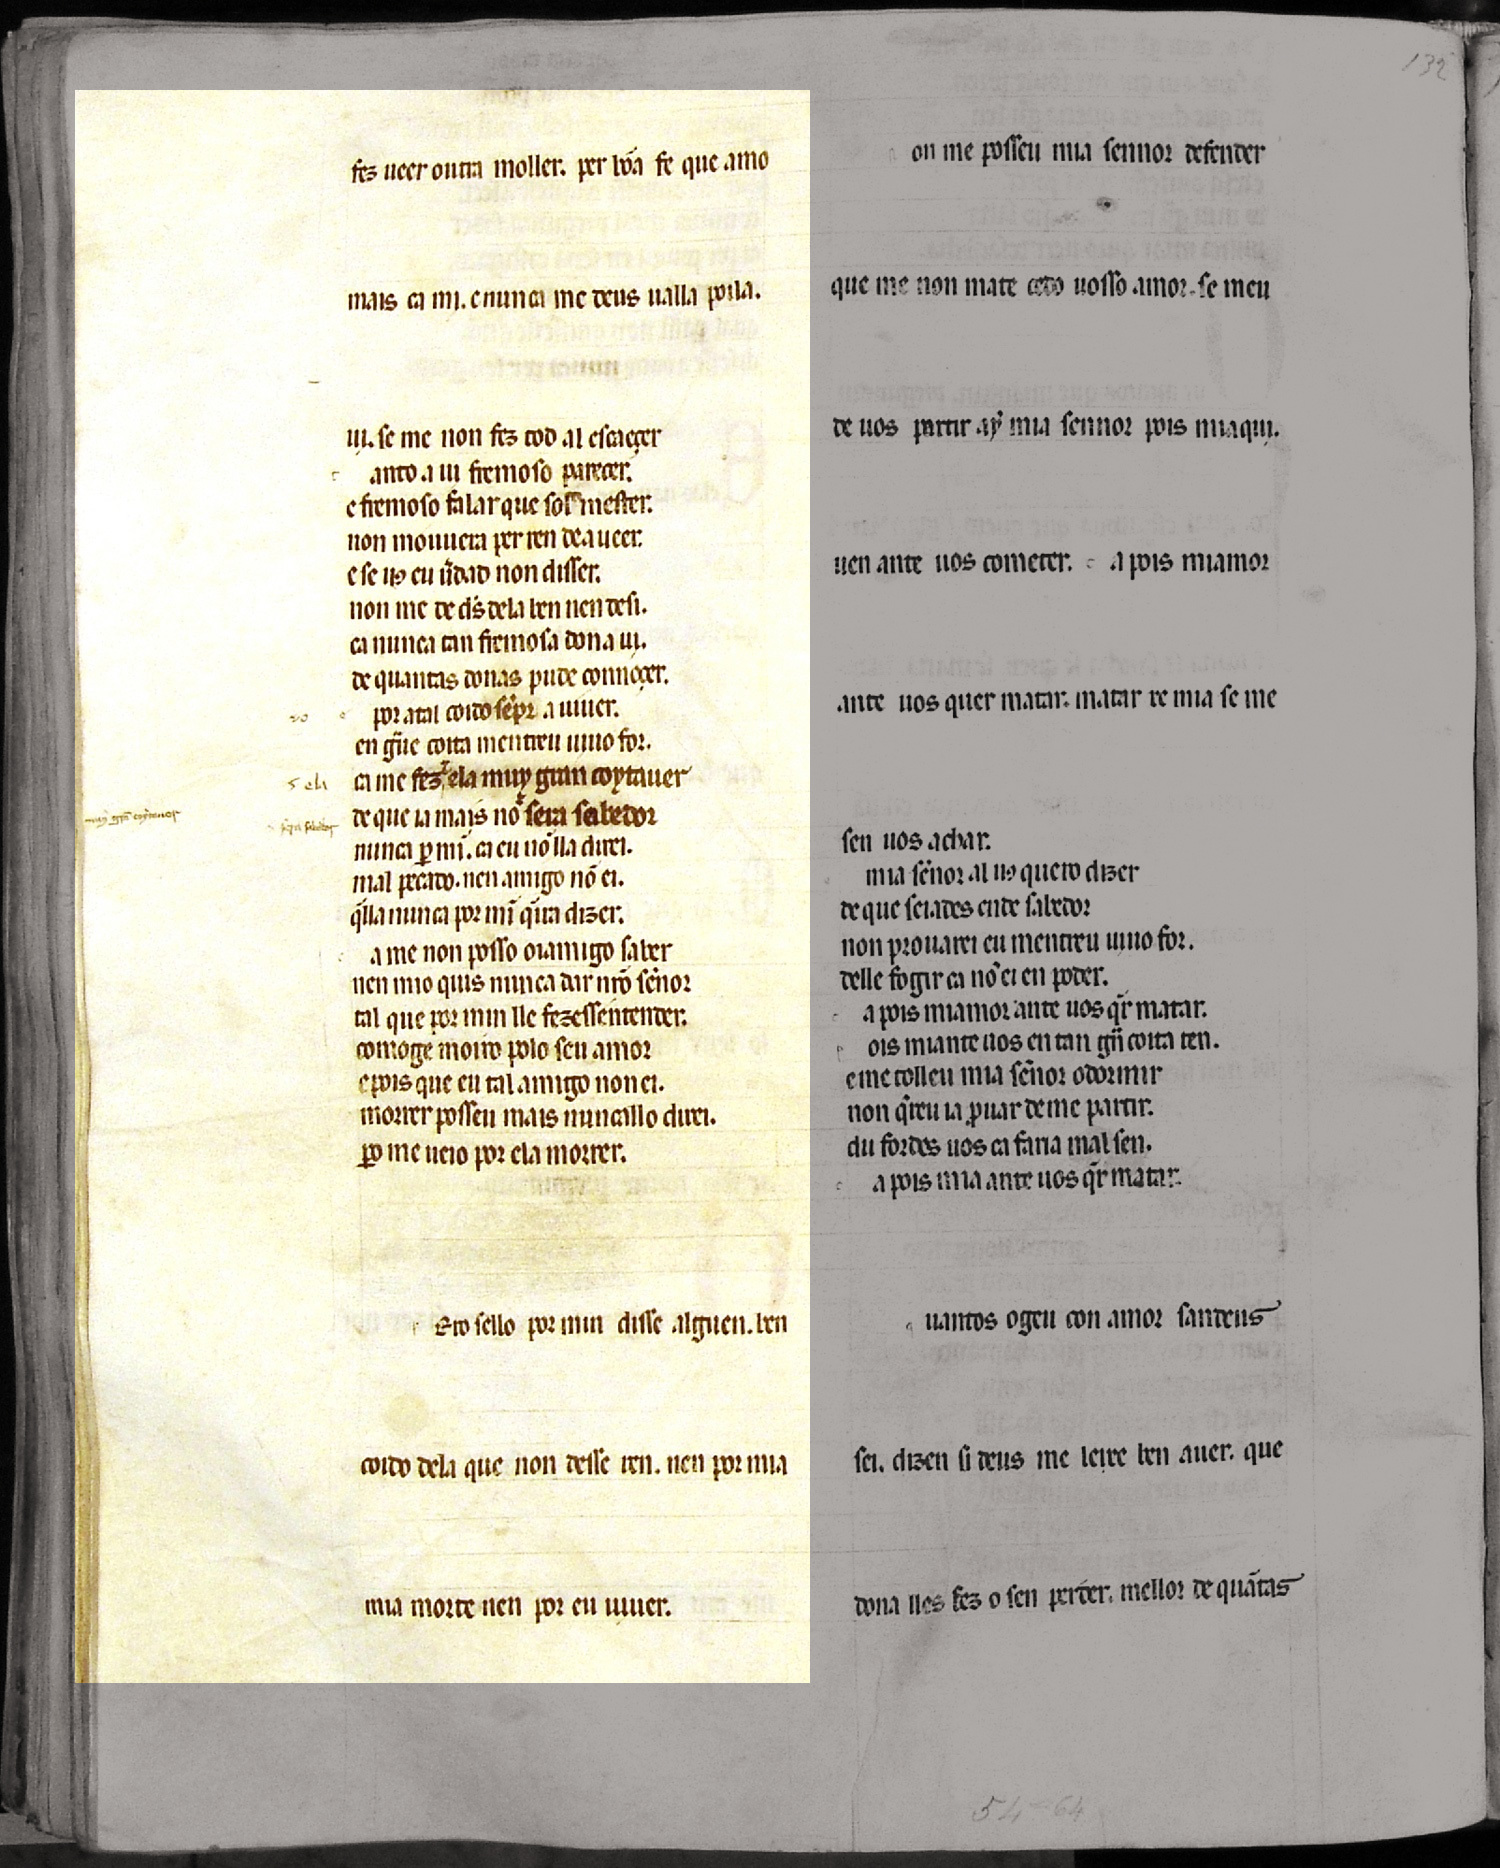 fez ueer outra moller. per bõa fe que amo
mais ca mi. e nunca me deus ualla pola.
ui. se me non fez tod al escaeçer
anto a ui fremoso pareçer.
e fremoso falar que sol mester.
non mouuera per ren de a ueer.
e se uꝯ eu u̾dad non disser.
non me de ds̃ dela ben nen desi.
ca nunca tan fremosa dona ui.
de quantas donas pude connoçer.
por atal coido sẽpr a uiuer.
en gñde coita mentreu uiuo for.
ca me fez ela muy gran coyta uer
de que ia mais nõ sera sabedor
nunca ꝑ mĩ. ca eu nõ lla direi.
mal pecado. nen amigo nõ ei.
q̃ lla nunca por mĩ q̃ira dizer.
a me non posso oi amigo saber
nen mio quis nunca dar nr̃o sẽnor
tal que por min lle fezessentender.
comoge moiro polo seu amor
e pois que eu tal amigo non ei.
morrer posseu mais nuncallo direi.
ꝑo me ueio por ela morrer.
Ero sello por min disse alguen. ben
coido dela que non desse ren. nen por mia
mia morte nen por eu uiuer.
on me posseu mia sennor defender
que me non mate cedo uosso amor. se meu
de uos partir ay mia sennor pois miaqui.
uen ante uos cometer. a pois miamor
ante uos quer matar. matar re mia se me
sen uos achar.
mia sẽnor al uꝯ quero dizer
de que seiades ende sabedor
non prouarei eu mentreu uiuo for.
delle fogir ca nõ ei en poder.
a pois miamor ante uos q̃r matar.
ois miante uos en tan gñ coita ten.
e me tolleu mia sẽnor o dormir
non q̃reu ia ꝓuar de me partir.
du fordes uos ca faria mal sen.
a pois mia ante uos q̃r matar.
uantos ogeu con amor sandeus
sei. dizen si deus me leixe ben auer. que
dona lles fez o sen perder. mellor de quãtas